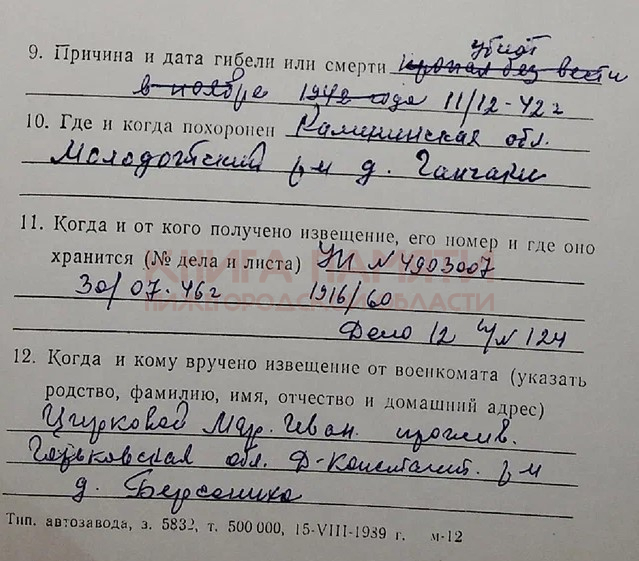 убит
9. Причина и дата гибели или смерти пропал без вести
в ноябре 1942 года 11/12-42 г
10. Где и когда похоронен Калининская обл.
Молодотский р-н д.
11. Когда и от кого получено извещение, его номер и где оно
хранится (№ дела и листа) УП N 4903007
КНИГА ПАМЯТИ
30/07-46 г 1916/60
НИЖЕГОРОДСКОЙ ОБЛАСТИ
Дело 12 N 124
12. Когда и кому вручено извещение от военкомата (указать
родство, фамилию, имя, отчество и домашний адрес)
Мар. Иван. прожив.
Горьковская обл. Д-Константин. р-н
д.
Тип. автозавода, з. 5832, т. 500 000, 15-VIII-1939 г. м-12